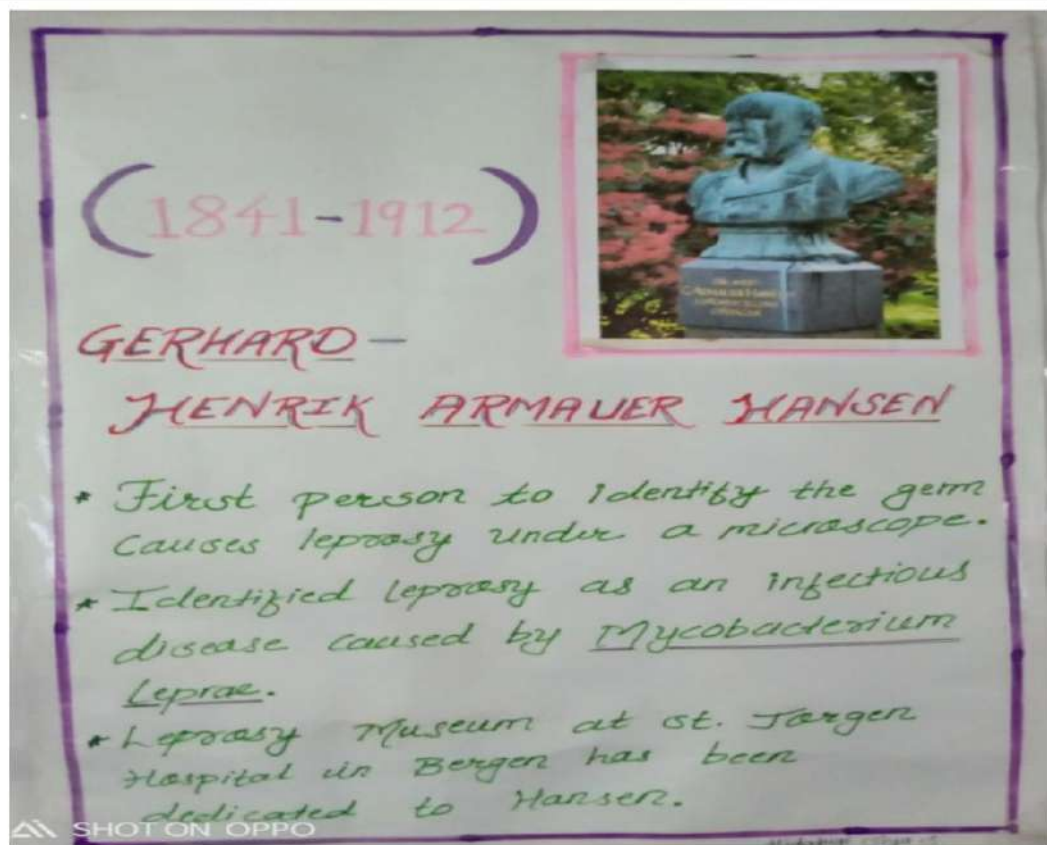 (1841-1912)
GERHARD-
HENRIK ARMAUER HANSEN
* First person to identify the germ
causes leprosy under a microscope.
* Identified leprosy as an infectious
disease caused by Mycobacterium
Leprae.
* Leprosy Museum at St. Jorgen
Hospital in Bergen has been
dedicated to Hansen.
SHOT ON OPPO